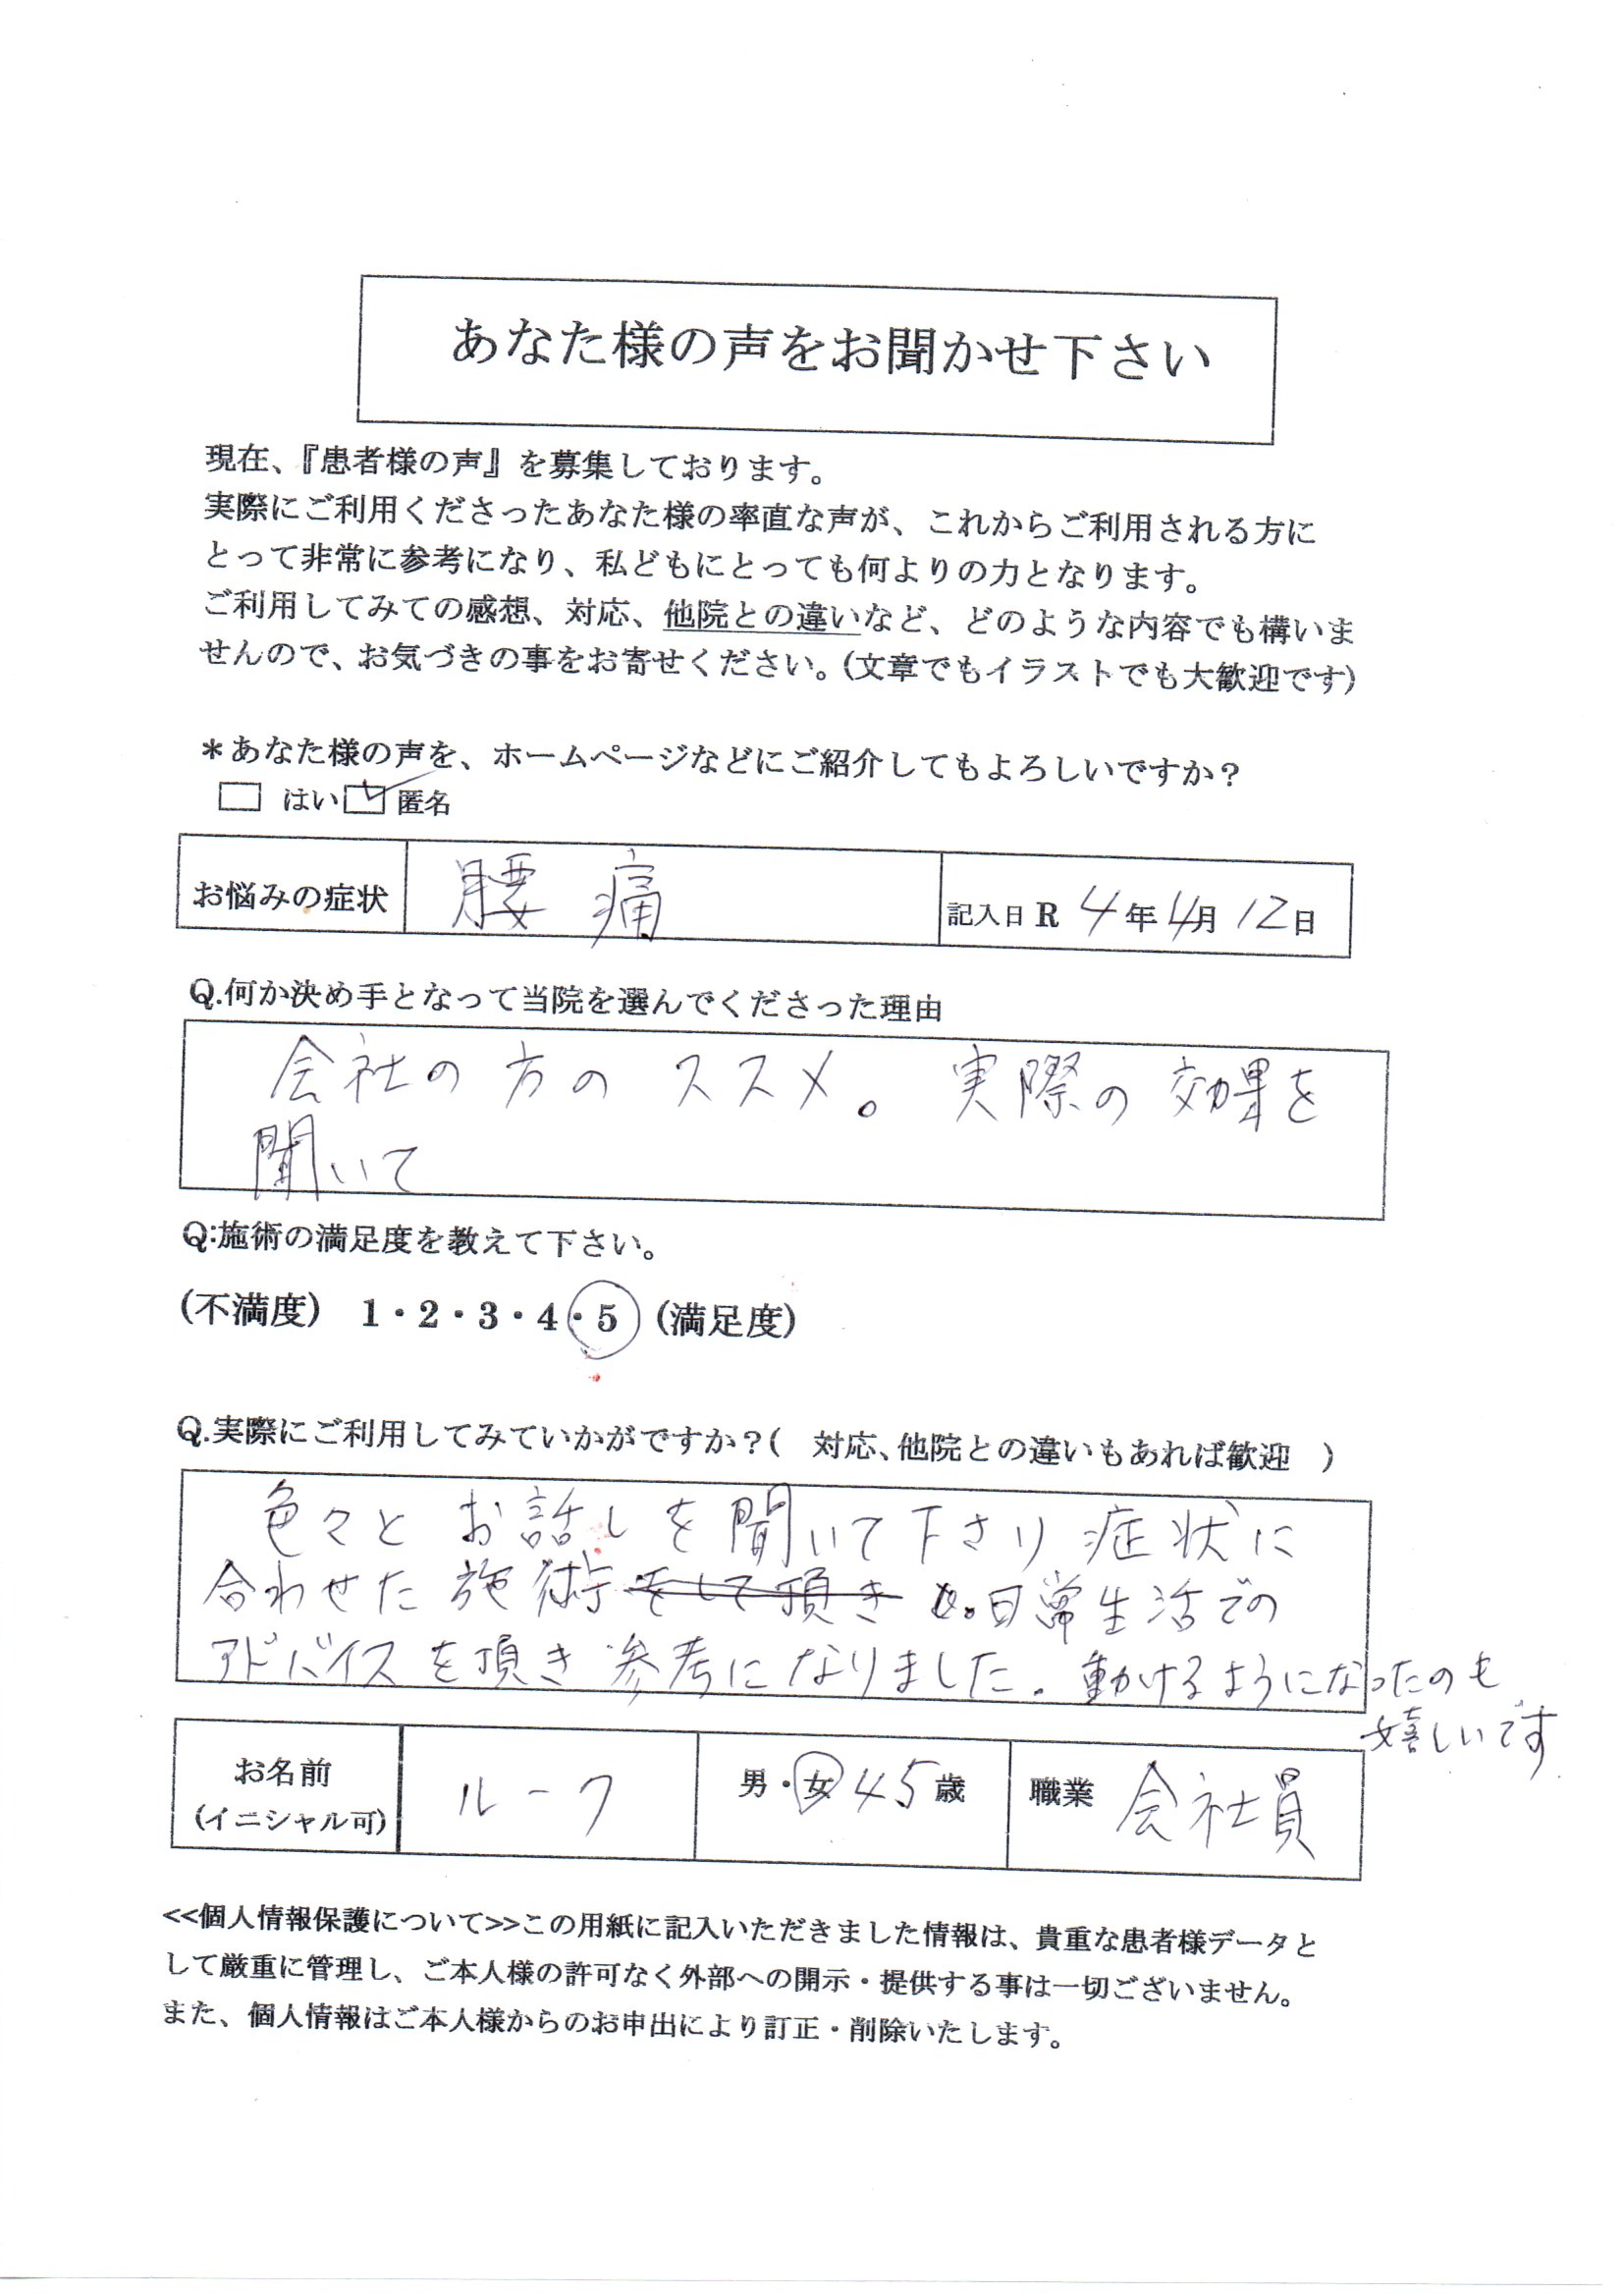 あなた様の声をお聞かせ下さい
現在、『患者様の声』を募集しております。
実際にご利用くださったあなた様の率直な声が、これからご利用される方に
とって非常に参考になり、私どもにとっても何よりの力となります。
ご利用してみての感想、対応、他院との違いなど、どのような内容でも構いま
せんので、お気づきの事をお寄せください。(文章でもイラストでも大歓迎です)
＊あなた様の声を、ホームページなどにご紹介してもよろしいですか？
□ はい ☑ 匿名
お悩みの症状 腰痛 記入日 R 4年4月12日
Q.何か決め手となって当院を選んでくださった理由
会社の方のススメ。実際の効果を
聞いて
Q:施術の満足度を教えて下さい。
(不満度) 1・2・3・4・5 (満足度)
Q.実際にご利用してみていかがですか？( 対応、他院との違いもあれば歓迎 )
色々とお話しを聞いて下さり症状に
合わせた施術をして頂き 日常生活での
アドバイスを頂き参考になりました。動けるようになったのも
嬉しいです
お名前 ルーク 男・女 45歳 職業 会社員
(イニシャル可)
<<個人情報保護について>>この用紙に記入いただきました情報は、貴重な患者様データと
して厳重に管理し、ご本人様の許可なく外部への開示・提供する事は一切ございません。
また、個人情報はご本人様からのお申出により訂正・削除いたします。